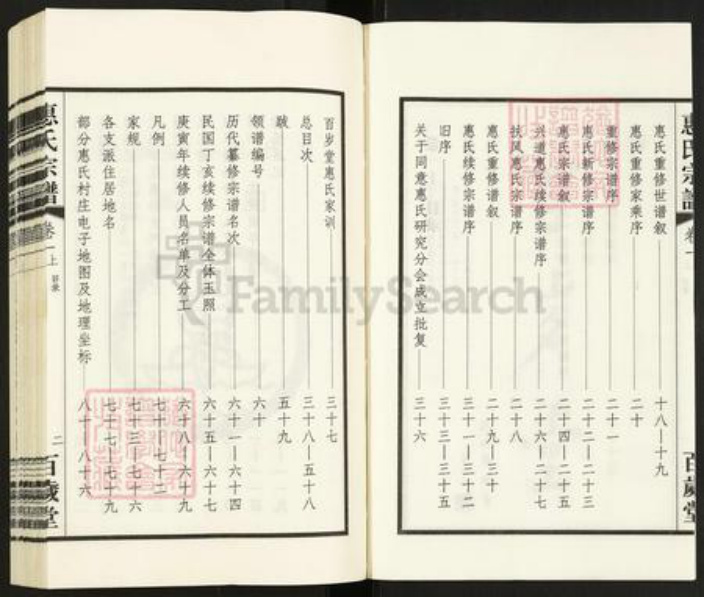 惠氏宗譜 卷一
百歲堂
惠氏重修世谱叙 十八—十九
惠氏重修家乘序 二十
重修宗谱序 二十一
惠氏新修宗谱序 二十二—二十三
惠氏宗谱叙 二十四—二十五
兴道惠氏续修宗谱序 二十六—二十七
扶风惠氏宗谱序 二十八
惠氏重修谱叙 二十九—三十
惠氏续修宗谱序 三十一—三十二
旧序 三十三—三十五
关于同意惠氏研究分会成立批复 三十六
百岁堂惠氏家训 三十七
总目次 三十八—五十八
跋 五十九
领谱编号 六十
历代纂修宗谱名次 六十一—六十四
民国丁亥续修宗谱全体玉照 六十五—六十七
庚寅年续修人员名单及分工 六十八—六十九
凡例 七十—七十二
家规 七十三—七十六
各支派住居地名 七十七—七十九
部分惠氏村庄电子地图及地理坐标 八十—八十六
惠氏宗譜 卷一上 目录
二
百歲堂
FamilySearch